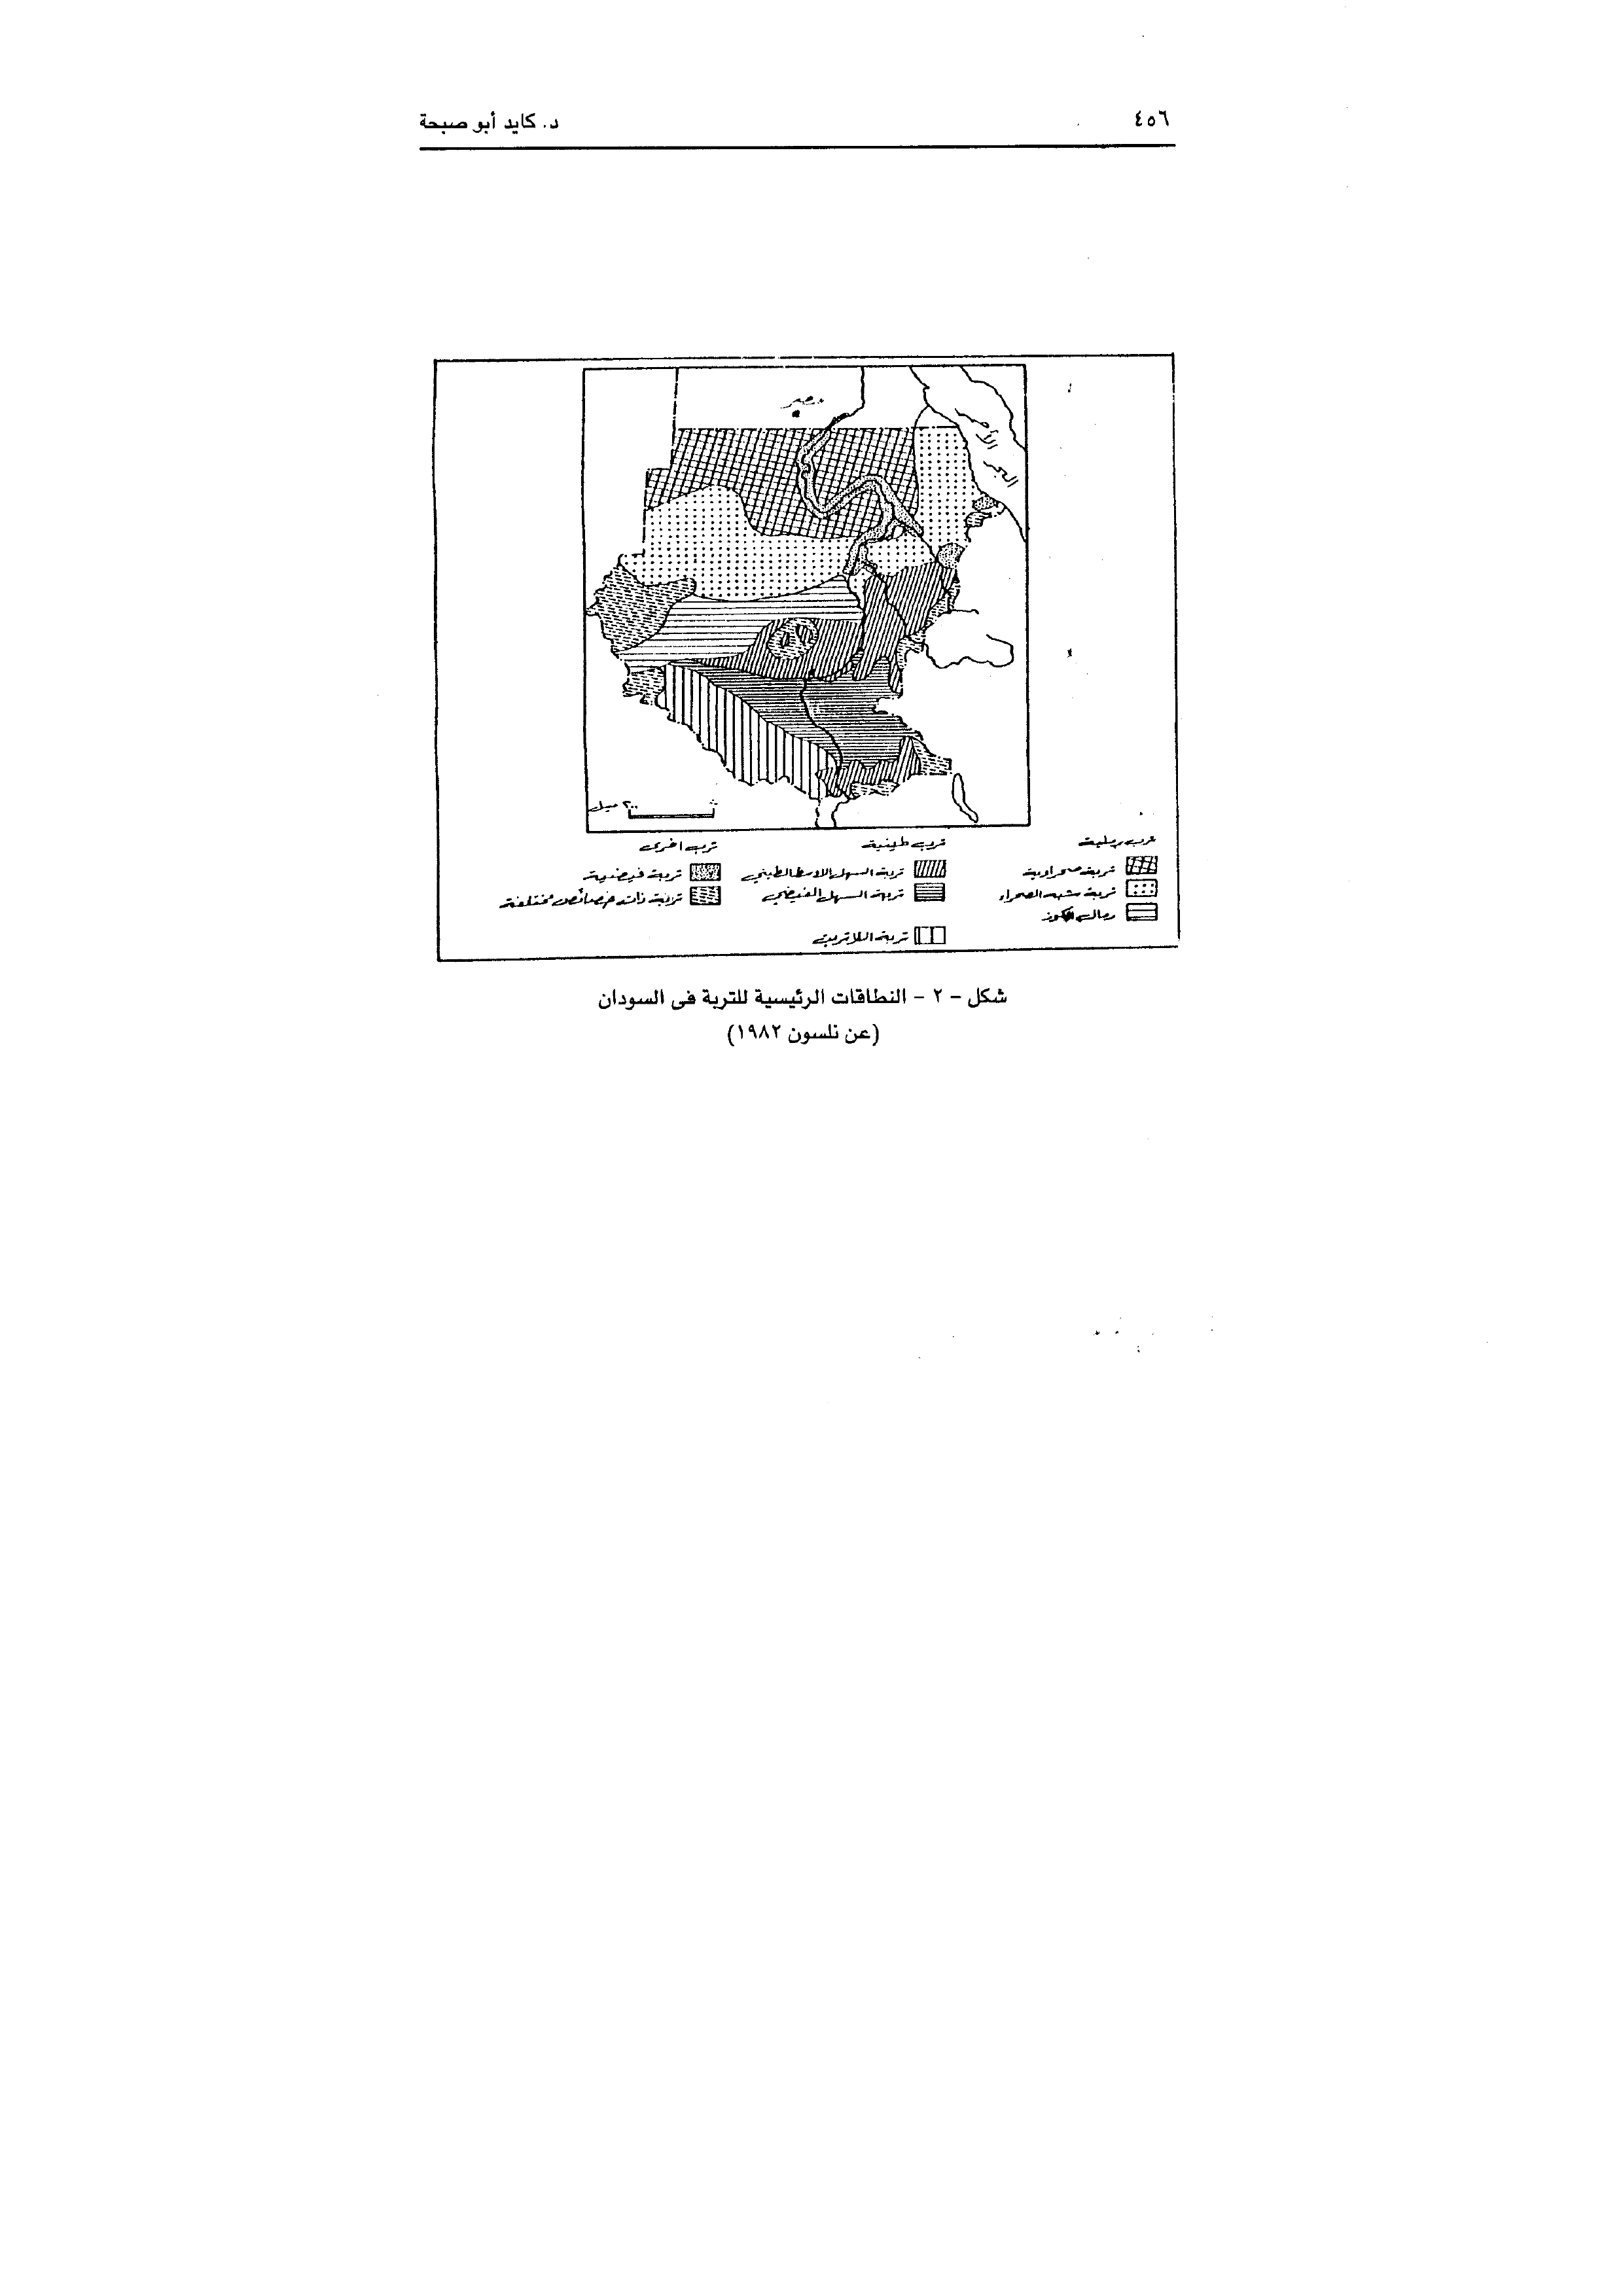 ٤٥٦
د. كايد أبو صبحة
مصر
البحر الأحمر
٢٠٠ ميل
ترب رملية
تربة صحراوية
تربة شبه الصحراء
رمال الكوز
ترب طينية
تربة السهل الاوسط الطيني
تربة السهل الفيضي
تربة اللاتريت
ترب اخرى
تربة فيضية
تربة ذات خصائص مختلفة
شكل - ٢ - النطاقات الرئيسية للتربة فى السودان
(عن نلسون ١٩٨٢)